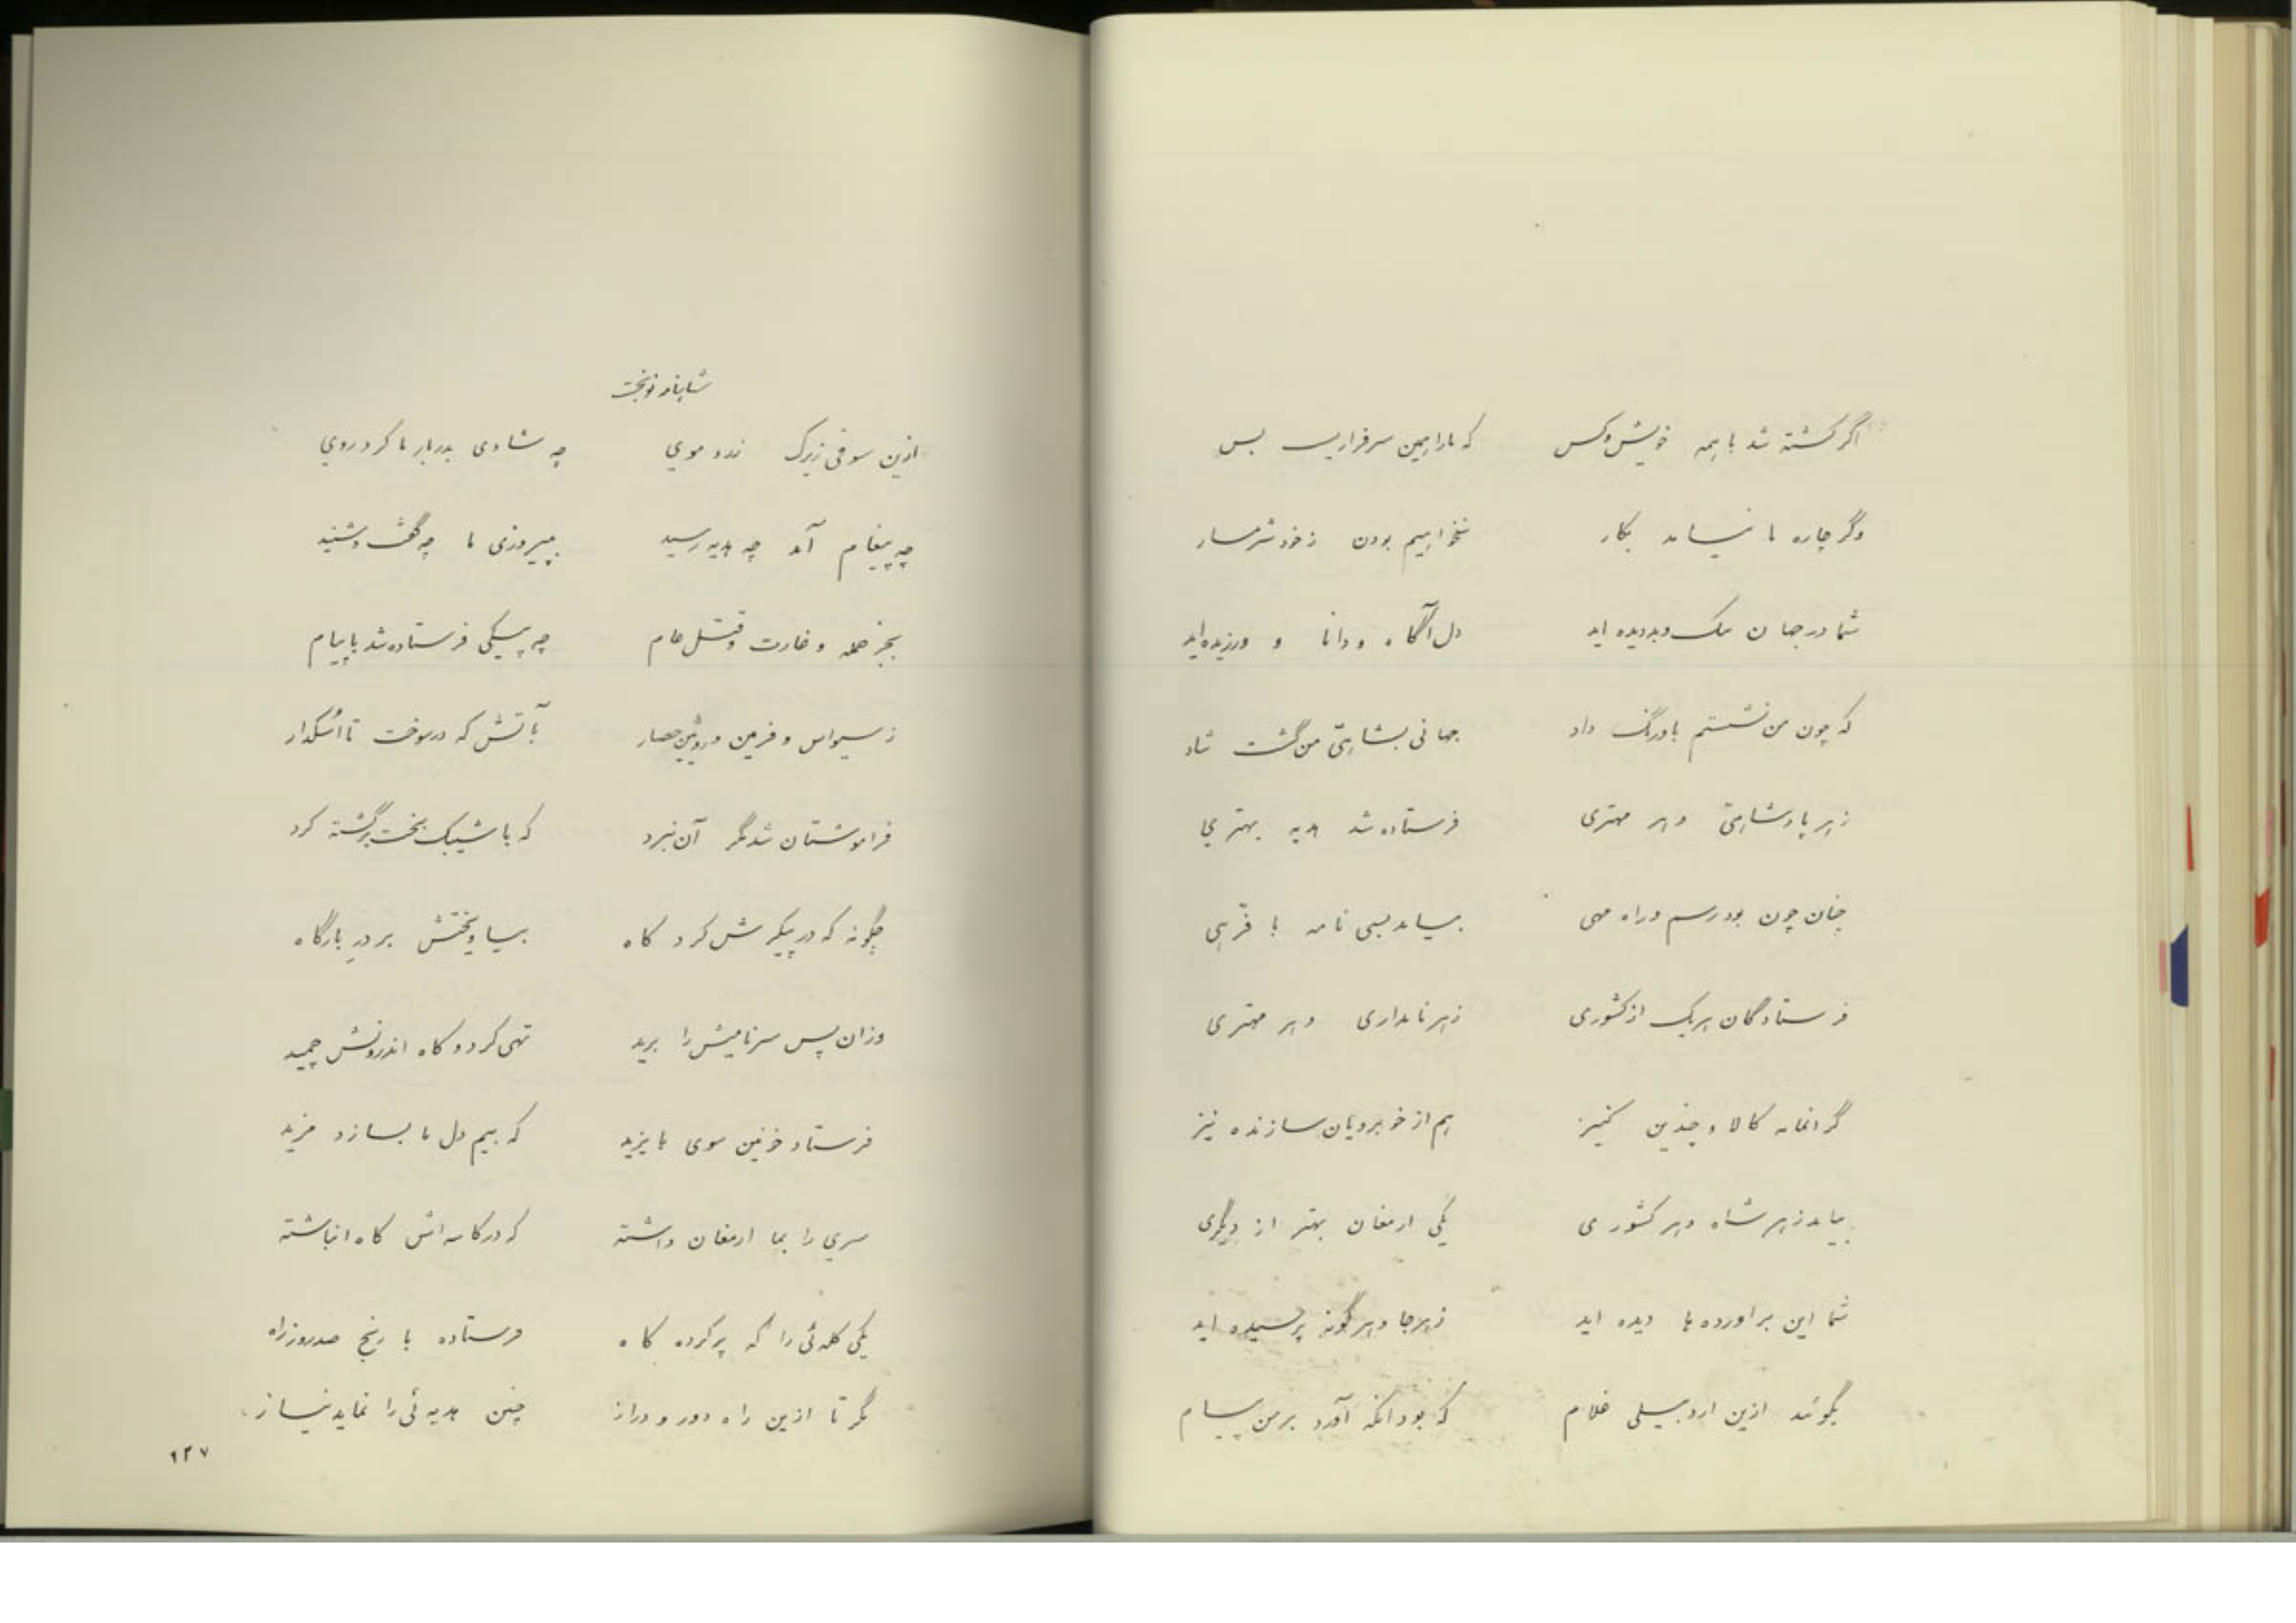 اگر کشته شد با همه خویش و کس که ما را همین سرفرازیست بس
وگر چاره ما نیاید بکار نخواهیم بودن ز خود شرمسار
شما در جهان ملک و بد دیده اید دل آگاه و دانا و ورزیده اید
که چون من نشستم باورنگ داد جهانی بشاهی من گشت شاد
ز هر پادشاهی و هر مهتری فرستاده شد هدیه بهتری
چنان چون بود رسم و راه مهی بیامد بسی نامه با فرّهی
فرستادگان هر یک از کشوری ز هر نامداری و هر مهتری
گرانمایه کالا و چندین کنیز هم از خوبرویان سازنده نیز
بیامد ز هر شاه و هر کشوری یکی ارمغان بهتر از دیگری
شما این برآورده ها دیده اید ز هر جا و هر گونه پرسیده اید
بگوئید ازین اردبیلی غلام که بود آنکه آورد بر من پیام
شاهنامه نوبخت
ازین سوفی زیرک زرد موی چه شادی بدربار ما کرد روی
چه پیغام آمد چه هدیه رسید بپیروزی ما چه گفت و شنید
بجز حمله و غارت و قتل عام چه پیکی فرستاده شد با پیام
ز سیواس و فرمین و رویین حصار بآتش که در سوخت تا اسکدار
فراموشتان شد مگر آن نبرد که با شیبک بخت برگشته کرد
چگونه که در پیکرش کرد کاه بیاویختش بر در بارگاه
وزان پس سر نامیش را برید تهی کرد و کاه اندرونش چمید
فرستاد خونین سوی بایزید که بیم دل ما بسازد مزید
سری را بما ارمغان داشته که در کاسه اش کاه انباشته
یکی کله ئی را که پر کرده کاه فرستاده با رنج صد روز راه
مگر تا ازین راه دور و دراز چنین هدیه ئی را نماید نیاز
۱۲۷